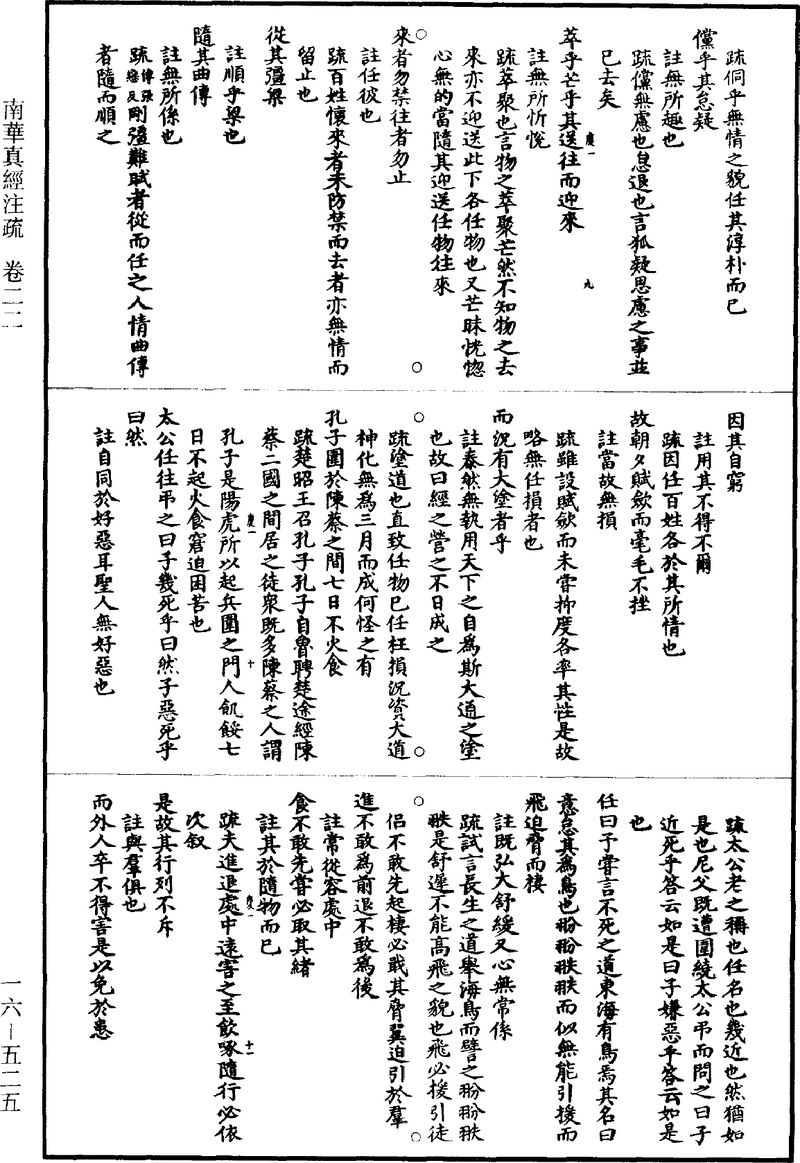 疏侗乎無情之貌任其淳朴而已
儻乎其怠疑
註無所趣也
疏儻無慮也怠退也言狐疑思慮之事並
已去矣
萃乎芒乎其送往而迎來
註無所忻恱
疏萃聚也言物之萃聚芒然不知物之去
來亦不迎送此下各任物也又芒昧恍惚
心無的當隨其迎送任物往來
來者勿禁往者勿止
註任彼也
疏百姓懷來者未防禁而去者亦無情而
留止也
從其彊梁
註順乎梁也
隨其曲傳
註無所係也
疏傳張戀反剛彊難賦者從而任之人情曲傳
者隨而順之
因其自窮
註用其不得不爾
疏因任百姓各於其所情也
故朝夕賦歛而毫毛不挫
註當故無損
疏雖設賦歛而未嘗抑度各率其性是故
略無任損者也
而況有大塗者乎
註泰然無執用天下之自為斯大通之塗
也故曰經之營之不日成之
疏塗道也直致任物已任枉損況資大道
神化無為三月而成何怪之有
孔子圍於陳蔡之間七日不火食
疏楚昭王召孔子孔子自魯聘楚途經陳
蔡二國之間居之徒眾既多陳蔡之人謂
孔子是陽虎所以起兵圍之門人飢餒七
日不起火食窘迫困苦也
太公任往弔之曰子幾死乎曰然子惡死乎
曰然
註自同於好惡耳聖人無好惡也
疏太公老之稱也任名也幾近也然猶如
是也尼父既遭圍繞太公弔而問之曰子
近死乎答云如是曰子嫌惡乎答云如是
也
任曰予嘗言不死之道東海有鳥焉其名曰
意怠其為鳥也翂翂翐翐而似無能引援而
飛迫脅而棲
註既弘大舒緩又心無常係
疏試言長生之道舉海鳥而譬之翂翂翐
翐是舒遲不能高飛之貌也飛必援引徒
侶不敢先起棲必戢其脅翼迫引於羣
進不敢為前退不敢為後
註常從容處中
食不敢先嘗必取其緒
註其於隨物而已
疏夫進退處中遠害之至飲啄隨行必依
次叙
是故其行列不斥
註與羣俱也
而外人卒不得害是以免於患
南華真經注疏 卷二二
一六－五二五